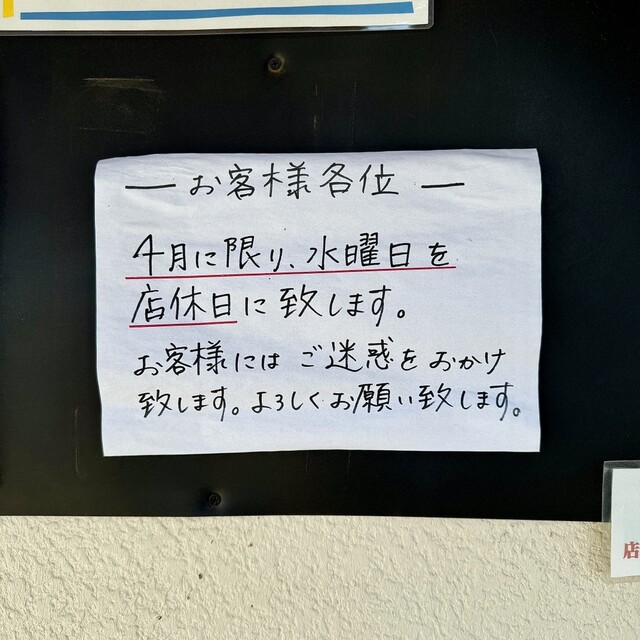 — お客様各位 —
4月に限り、水曜日を
店休日に致します。
お客様には ご迷惑を おかけ
致します。よろしくお願い致します。
店